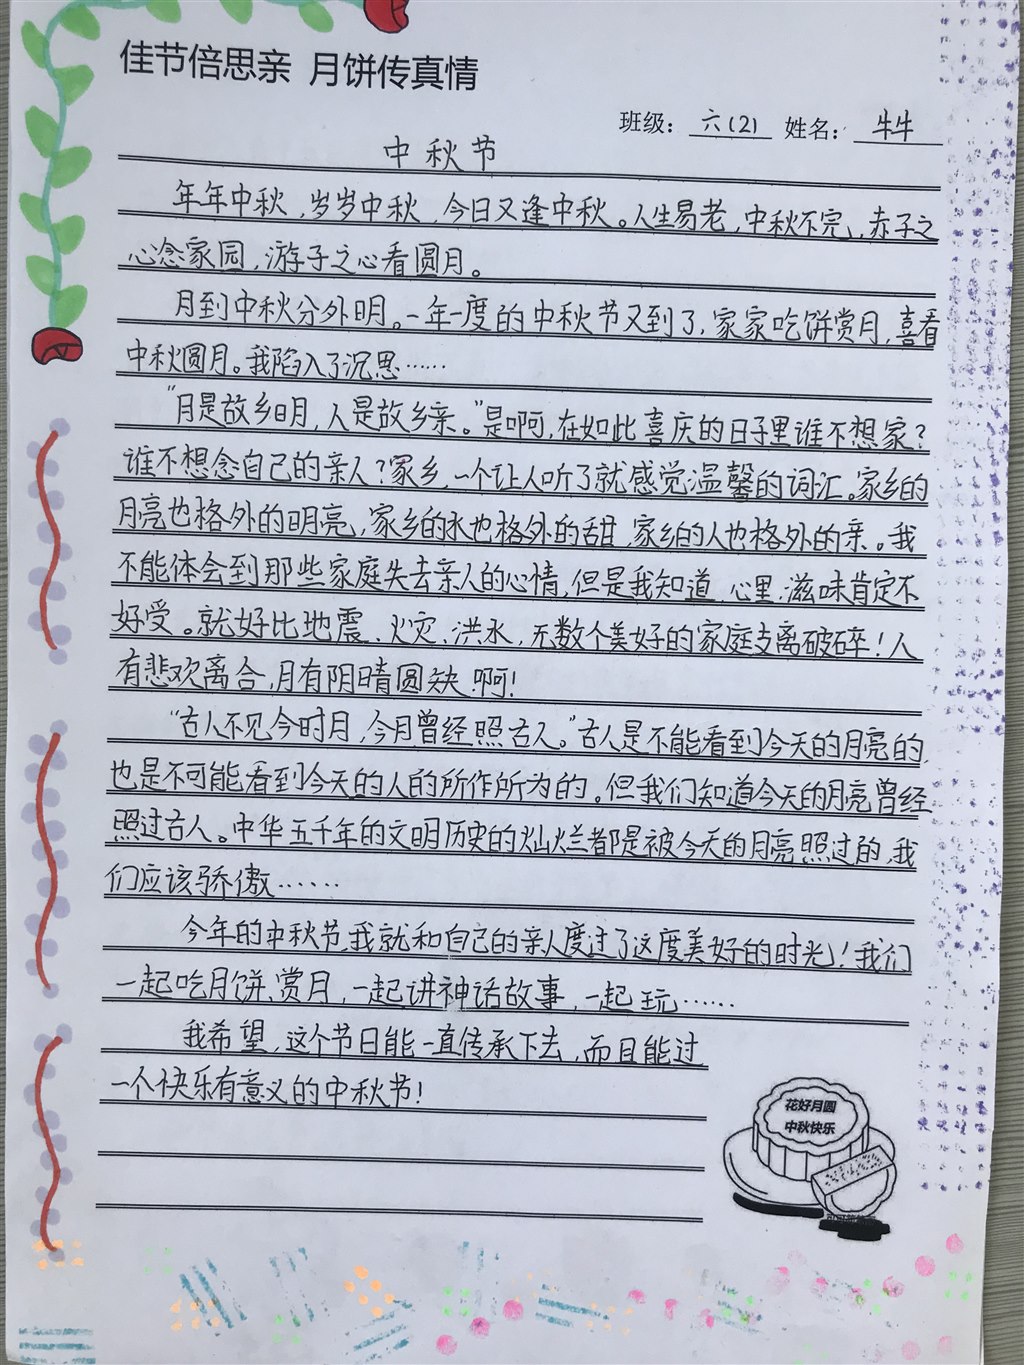 佳节倍思亲 月饼传真情
班级：六(2) 姓名：牛牛
中秋节
年年中秋,岁岁中秋,今日又逢中秋。人生易老,中秋不完,赤子之
心念家园,游子之心看圆月。
月到中秋分外明。一年一度的中秋节又到了,家家吃饼赏月,喜看
中秋圆月。我陷入了沉思……
“月是故乡明,人是故乡亲。”是啊,在如此喜庆的日子里谁不想家?
谁不想念自己的亲人?家乡,一个让人听了就感觉温馨的词汇。家乡的
月亮也格外的明亮,家乡的水也格外的甜,家乡的人也格外的亲。我
不能体会到那些家庭失去亲人的心情,但是我知道,心里,滋味肯定不
好受。就好比地震、火灾、洪水,无数个美好的家庭支离破碎!人
有悲欢离合,月有阴晴圆缺啊!
“古人不见今时月,今月曾经照古人。”古人是不能看到今天的月亮的,
也是不可能看到今天的人的所作所为的。但我们知道今天的月亮曾经
照过古人。中华五千年的文明历史的灿烂都是被今天的月亮照过的,我
们应该骄傲……
今年的中秋节,我就和自己的亲人度过了这度美好的时光!我们
一起吃月饼、赏月,一起讲神话故事,一起玩……
我希望,这个节日能一直传承下去,而且能过
一个快乐有意义的中秋节!
花好月圆
中秋快乐